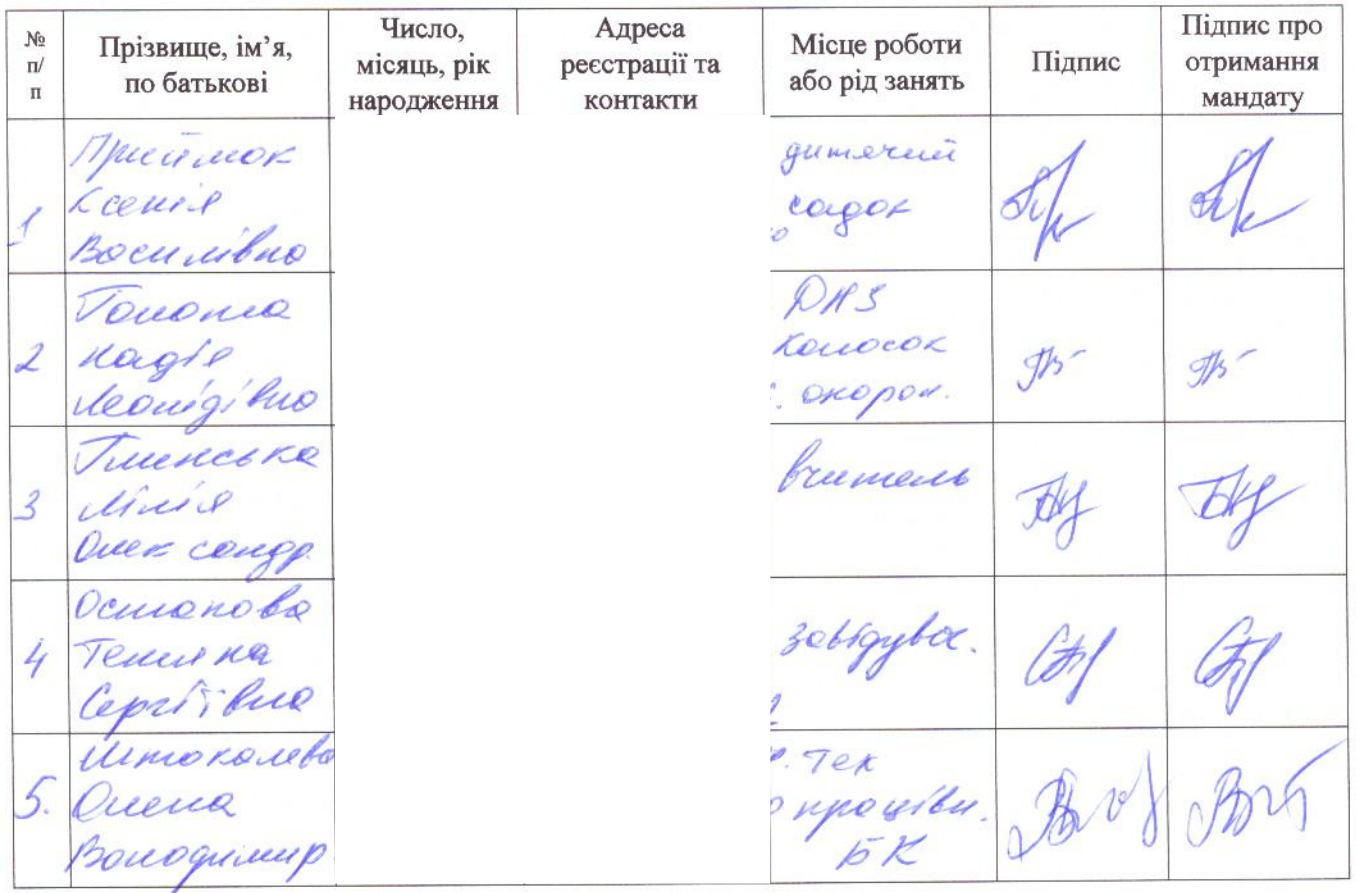 № п/п
Прізвище, ім'я, по батькові
Число, місяць, рік народження
Адреса реєстрації та контакти
Місце роботи або рід занять
Підпис
Підпис про отримання мандату
1
Приймок
Ксенія
Василівна
дитячий
садок
2
Голота
Надія
Леонідівна
ДНЗ
Колосок
охорон.
3
Глинська
Лілія
Олександр.
вчитель
4
Остапова
Тетяна
Сергіївна
завідувач.
5.
Штокалева
Олена
Володимир
тех
працівн.
БК